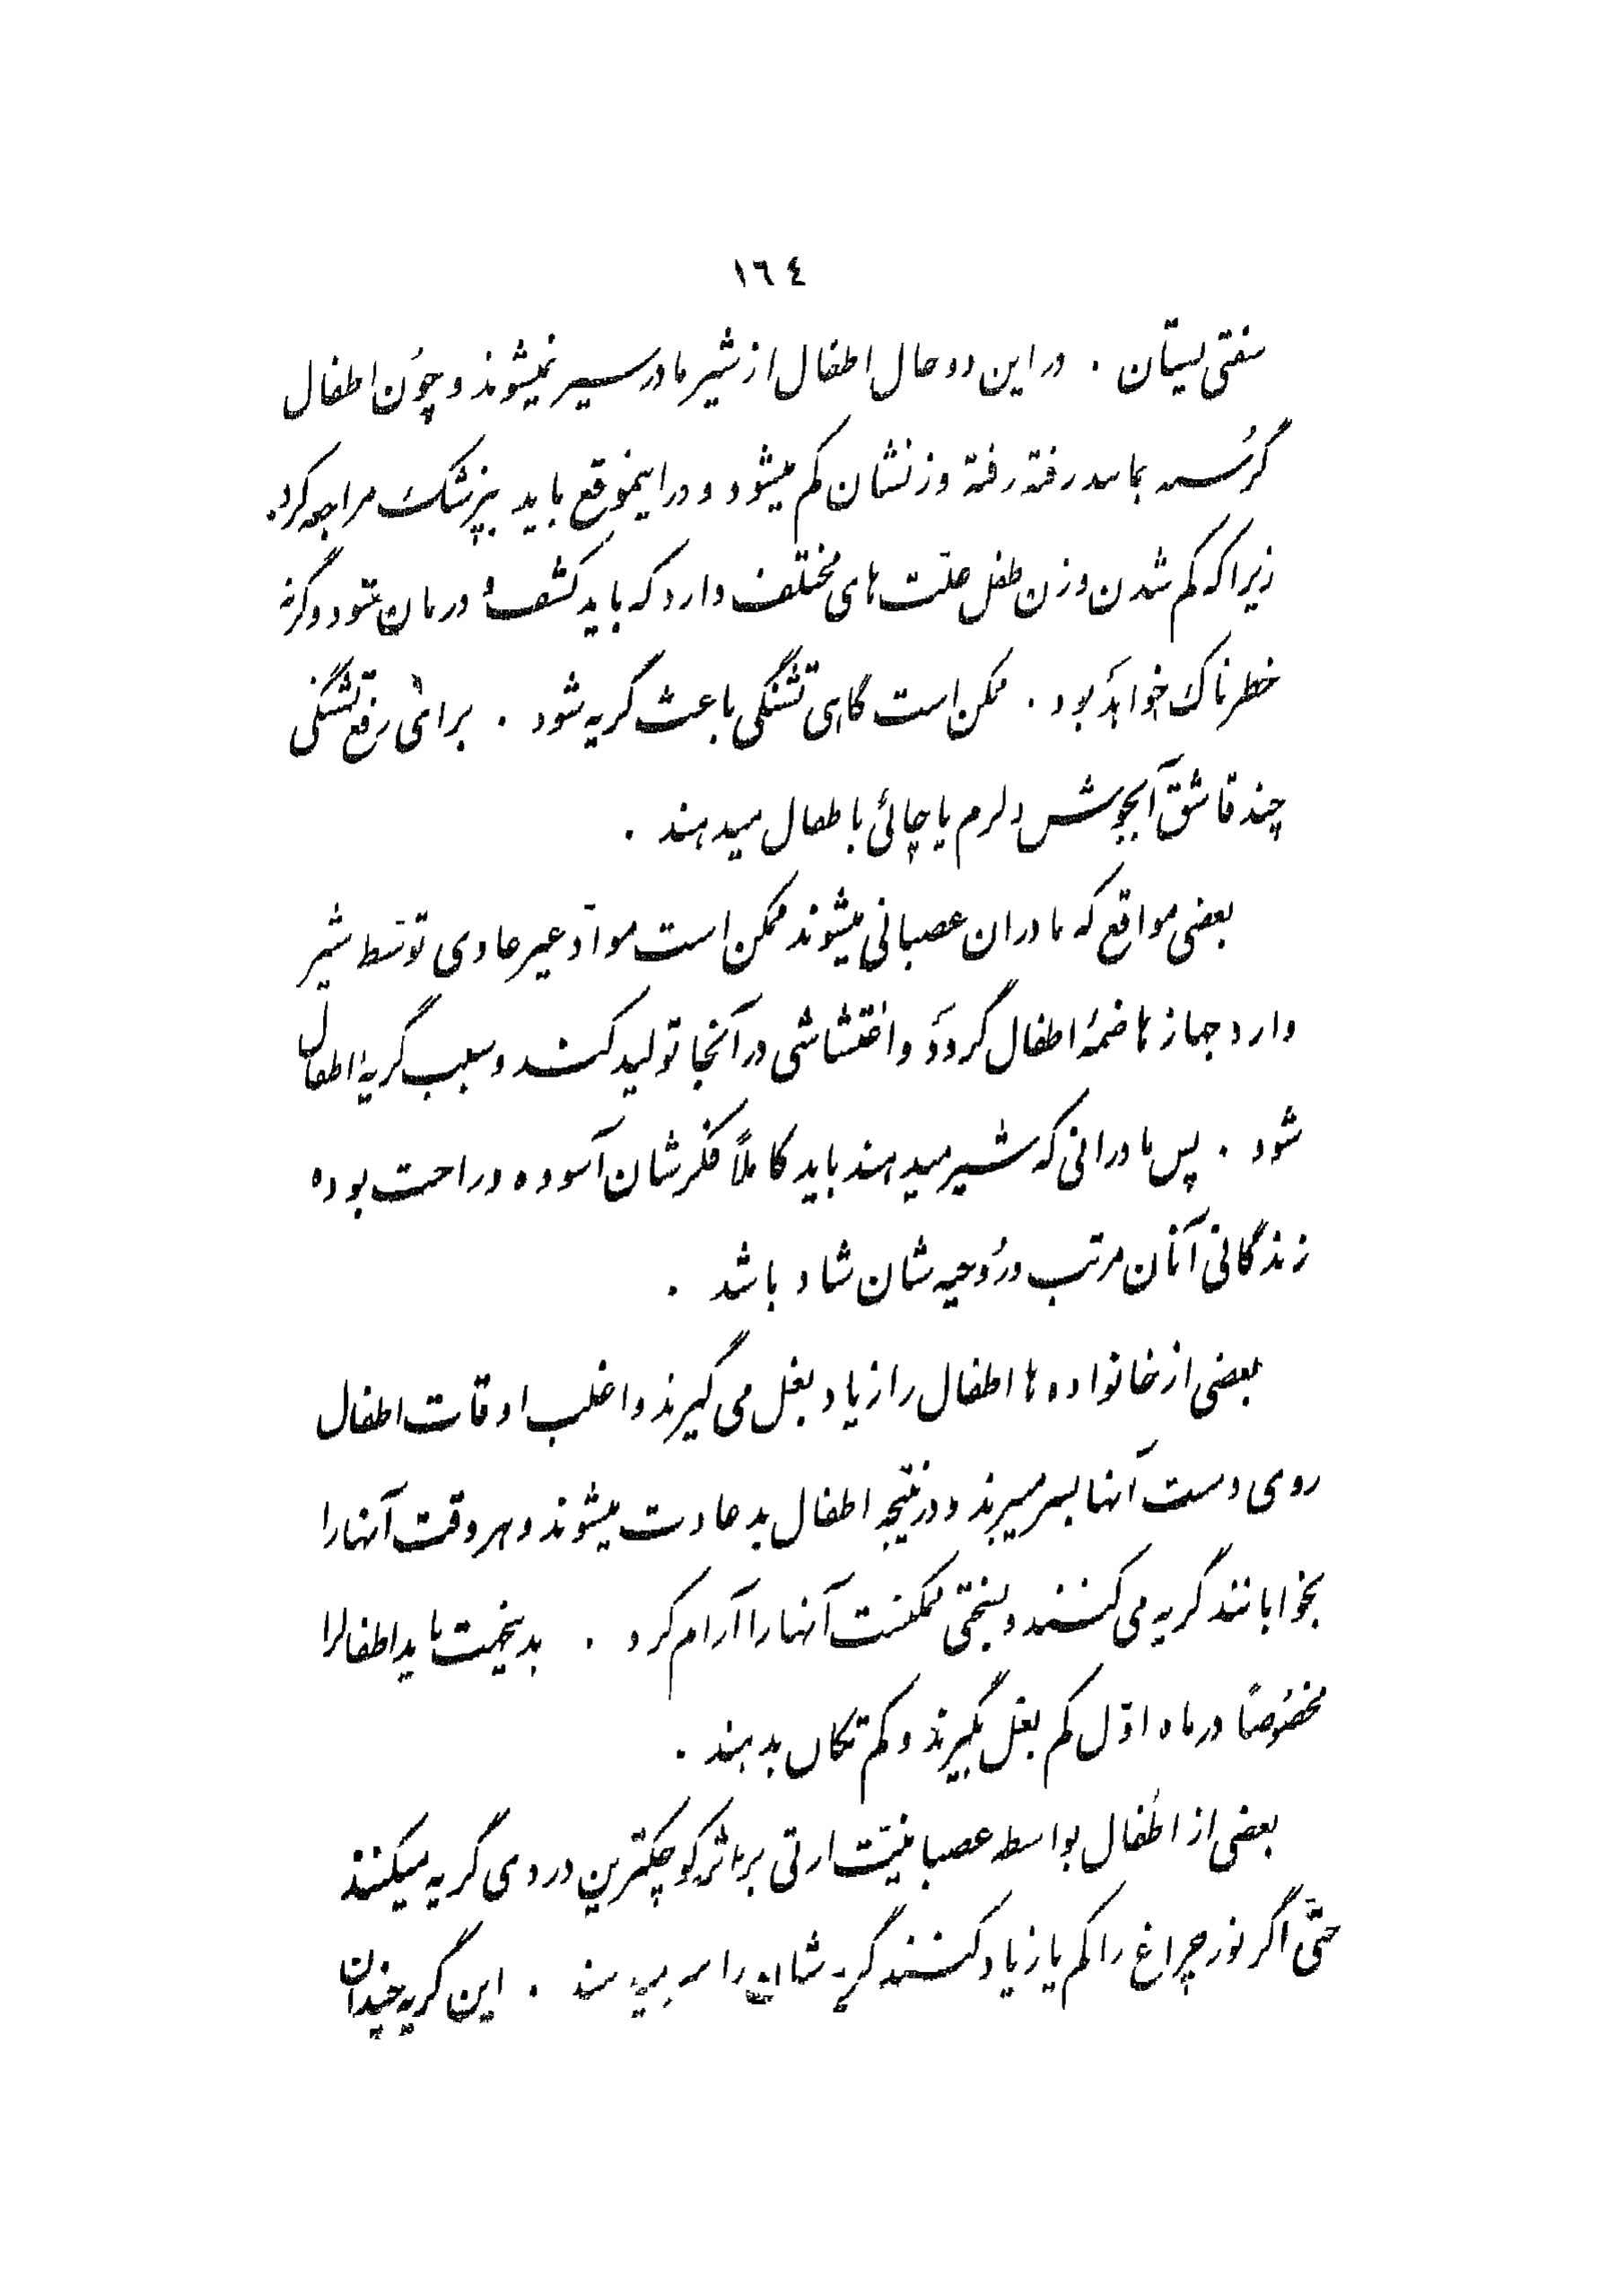 ١٦٤
سفتی پستان . در این دو حال اطفال از شیر مادر سیر نمیشوند و چون اطفال
گرسنه بمانند رفته رفته وزنشان کم میشود و در اینموقع باید بپزشک مراجعه کرد.
زیرا که کم شدن وزن طفل علت های مختلف دارد که باید کشف و درمان شود وگرنه
خطرناک خواهد بود . ممکن است گاهی تشنگی باعث گریه شود . برای رفع تشنگی
چند قاشق آبجوش ولرم یا چائی باطفال میدهند .
بعضی مواقع که مادران عصبانی میشوند ممکن است مواد غیر عادی توسط شیر
وارد جهاز هاضمهٔ اطفال گردد و اغتشاشی در آنجا تولید کنند و سبب گریهٔ اطفال
شود . پس مادرانی که شیر میدهند باید کاملاً فکرشان آسوده و راحت بوده
زندگانی آنان مرتب و رُوحیه شان شاد باشد .
بعضی از خانواده ها اطفال را زیاد بغل می گیرند و اغلب اوقات اطفال
روی دست آنها بسر میبرند و در نتیجه اطفال بد عادت میشوند و هر وقت آنها را
بخوابانند گریه می کنند و بسختی ممکنست آنها را آرام کرد . بدینجهت باید اطفال را
مخصوصاً در ماه اوّل کم بغل بگیرند و کم تکان بدهند .
بعضی از اطفال بواسطه عصبانیّت ارثی بر اثر کوچکترین دردی گریه میکنند
حتّی اگر نور چراغ را کم یا زیاد کنند گریه شان را سر میدهند . این گریه چندان